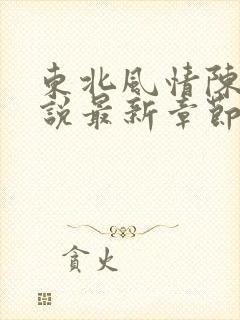 東北風情陳
說最新章節
貪火